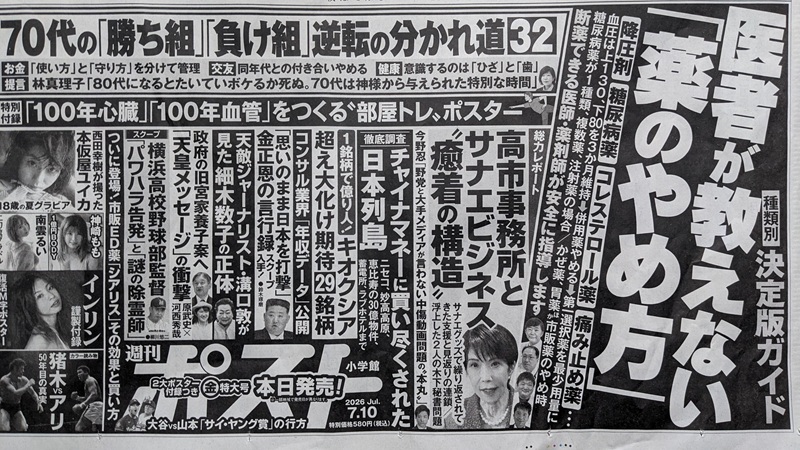 医者が教えない
「薬のやめ方」
種類別 決定版ガイド
降圧剤 糖尿病薬 コレステロール薬 痛み止め薬…
血圧は上130、下80を3か月維持
併用薬やめる
第一選択薬を最少用量に
糖尿病薬が1種類、複数薬、注射薬の場合
かぜ薬、胃薬、市販薬のやめ時
断薬できる医師・薬剤師が安全に指導します
70代の「勝ち組」「負け組」逆転の分かれ道32
お金 「使い方」と「守り方」を分けて管理 交友 同年代との付き合いやめる 健康 意識するのは「ひざ」と「歯」
提言 林真理子「80代になるとたいていボケるか死ぬ。70代は神様から与えられた特別な時間」
特別付録 「100年心臓」「100年血管」をつくる“部屋トレ”ポスター
総力レポート
高市事務所と
サナエビジネス
“癒着の構造”
サナエグッズで繰り返されて
きた支援と見返りの連鎖
浮上したもう一人の木下秘書問題
今野忍「野党と大手メディアが言わない中傷動画問題の“本丸”」
徹底調査
チャイナマネーに買い尽くされた
日本列島
ニセコ、妙高高原、
恵比寿の30億物件、
蓄電所、ラブホテルまで
1銘柄で億り人!キオクシア
超え大化け期待29銘柄
コンサル業界「年収データ」公開
「思いのまま日本を打撃」
金正恩の言行録
スクープ入手
天敵ジャーナリスト・溝口敦が
見た細木数子の正体
政府の旧宮家養子案へ
「天皇メッセージ」の衝撃
原武史×河西秀哉
スクープ
横浜高校野球部監督
「パワハラ告発」と謎の除霊師
ついに登場!市販ED薬「シアリス」その効果と買い方
西田幸樹が撮った
本仮屋ユイカ
18歳の夏グラビア
神崎もも
南雲るい
インリン
謹製付録
復活M字ポスター
猪木vsアリ
50年目の真実
週刊ポスト
小学館
2大ポスター付録つき
金特大号
本日発売!
2026 Jul.
7.10
特別価格580円(税込)
大谷vs山本「サイ・ヤング賞」の行方